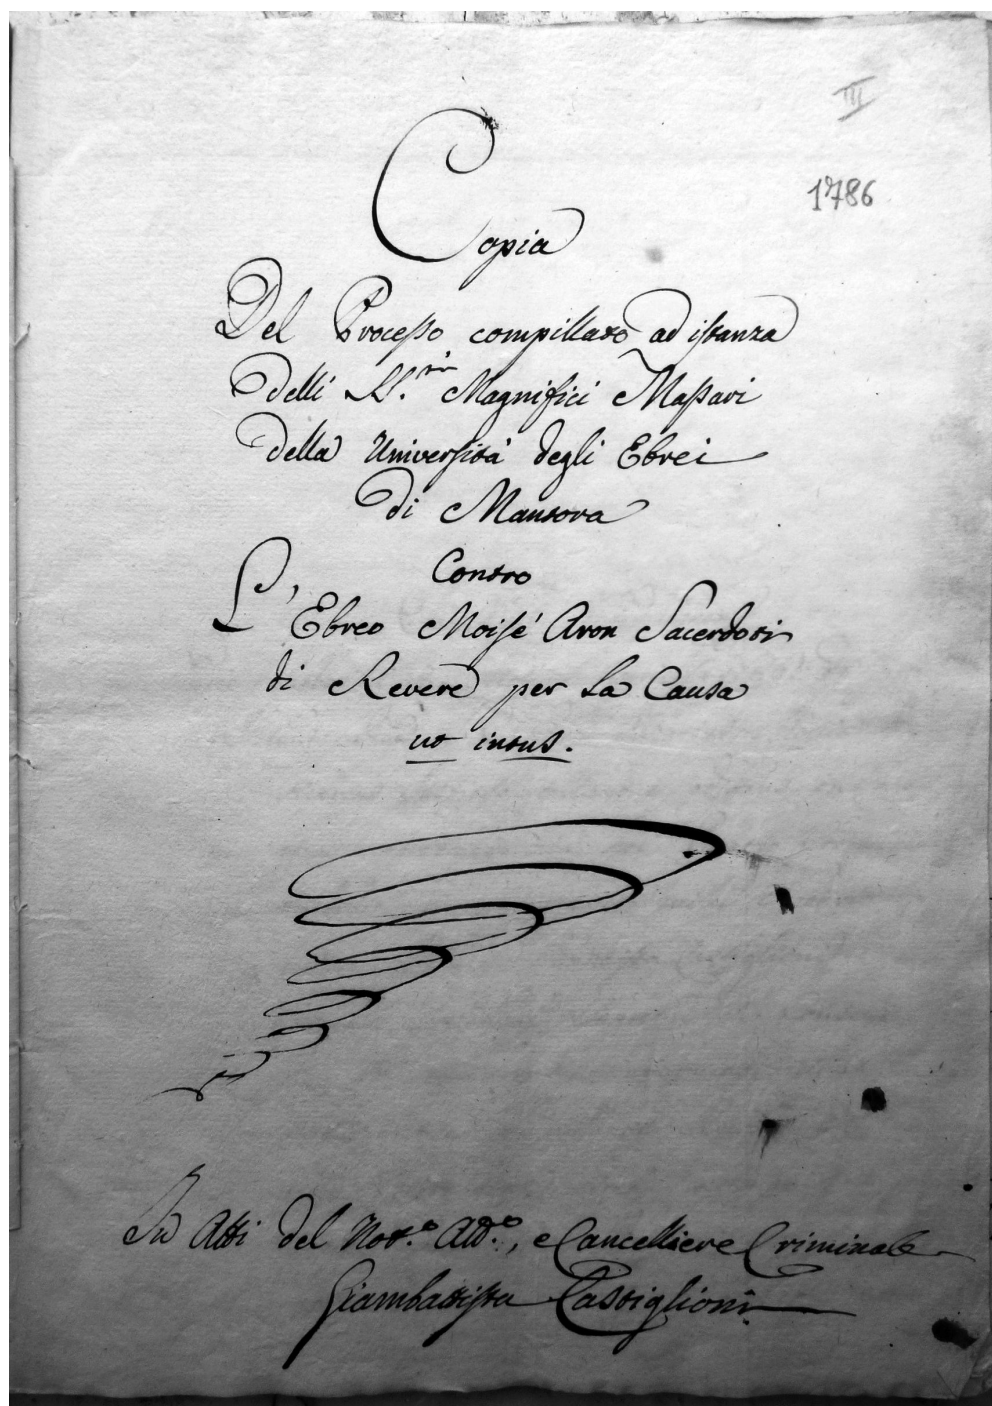 III
1786
Copia
Del Processo compillato ad istanza
delli SS.ri Magnifici Massari
della Università degli Ebrei
di Mantova
Contro
L'Ebreo Moisé Aron Sacerdoti
di Revere per la Causa
ut intus.
In Atti del Not.o Att.o, e Cancelliere Criminale
Giambattista Castiglioni